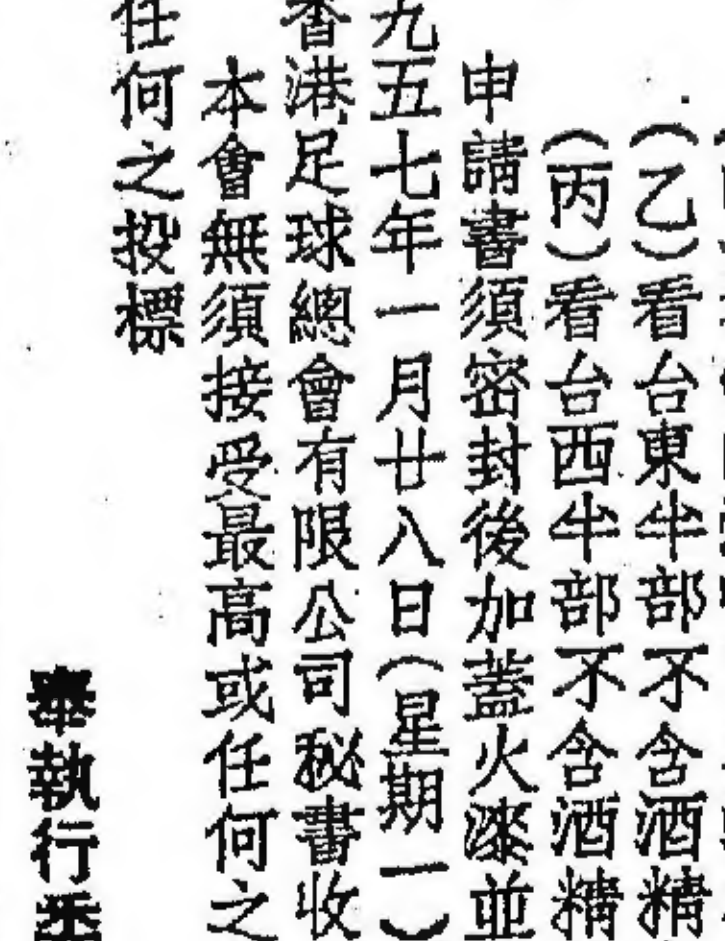 （乙）看台東半部不含酒精
（丙）看台西半部不含酒精
申請書須密封後加蓋火漆並
九五七年一月廿八日（星期一）
香港足球總會有限公司秘書收
本會無須接受最高或任何之
任何之投標
奉執行委